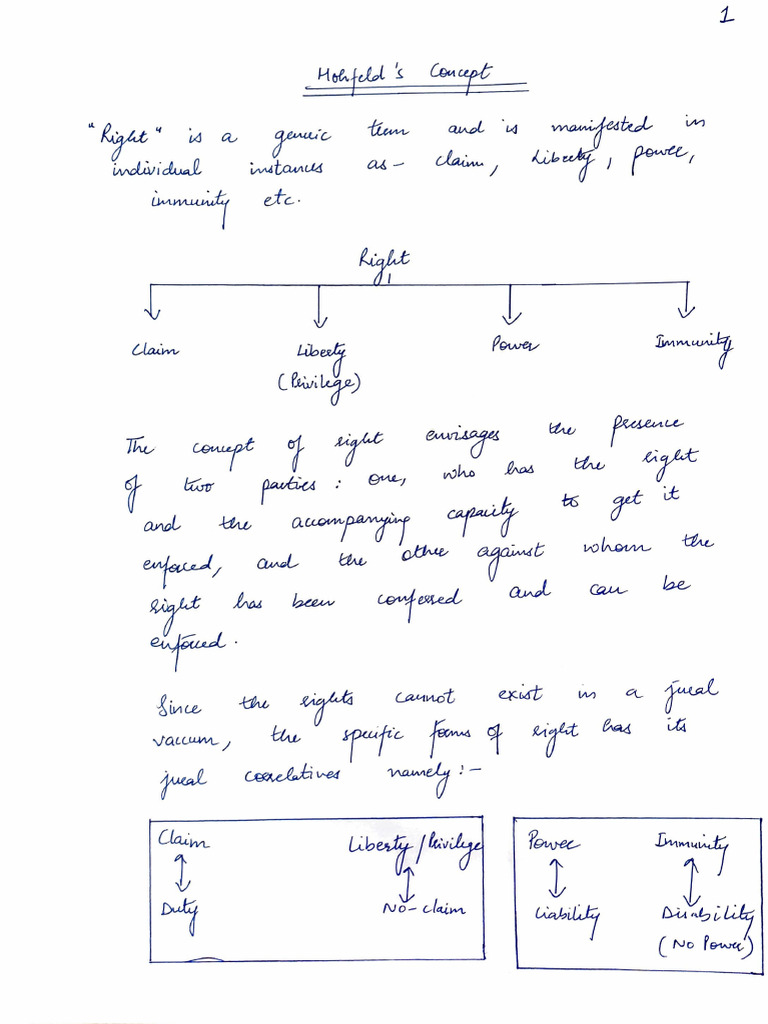 1
Hohfeld's Concept
"Right" is a generic term and is manifested in
individual instances as - claim, Liberty, power,
immunity etc.
Right
Claim Liberty Power Immunity
(Privilege)
The concept of right envisages the presence
of two parties : one, who has the right
and the accompanying capacity to get it
enforced, and the other against whom the
right has been conferred and can be
enforced.
Since the rights cannot exist in a jural
vaccum, the specific forms of right has its
jural correlatives namely :-
Claim Liberty / Privilege Power Immunity
Duty No-claim Liability Disability
(No Power)